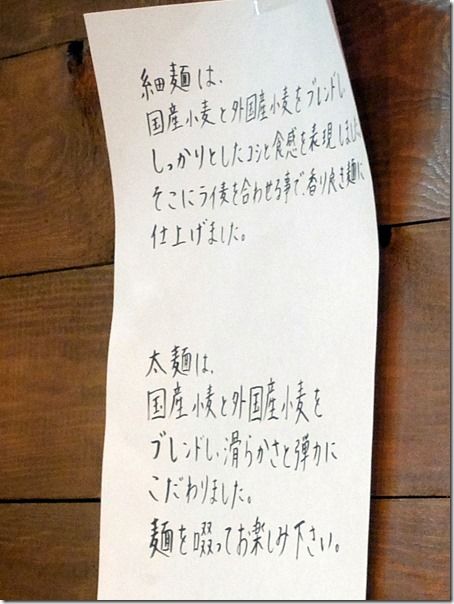 細麺は、
国産小麦と外国産小麦をブレンドし
しっかりとしたコシと食感を表現しました
そこにライ麦を合わせる事で香り良き麺に
仕上げました。
太麺は、
国産小麦と外国産小麦を
ブレンドし、滑らかさと弾力に
こだわりました。
麺を啜ってお楽しみ下さい。